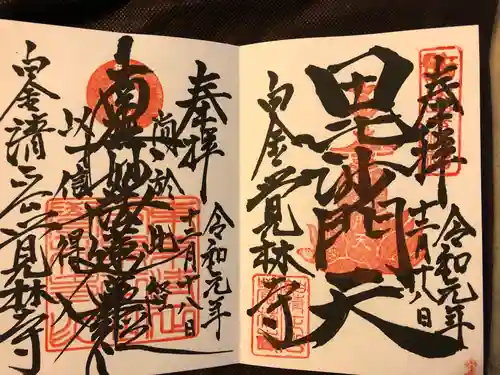 奉拝
令和元年
十二月十八日
毘沙門天
白金覚林寺
奉拝
令和元年
十二月十八日
尚於此経
南無妙法蓮華経
以信得入
白金清正公覚林寺